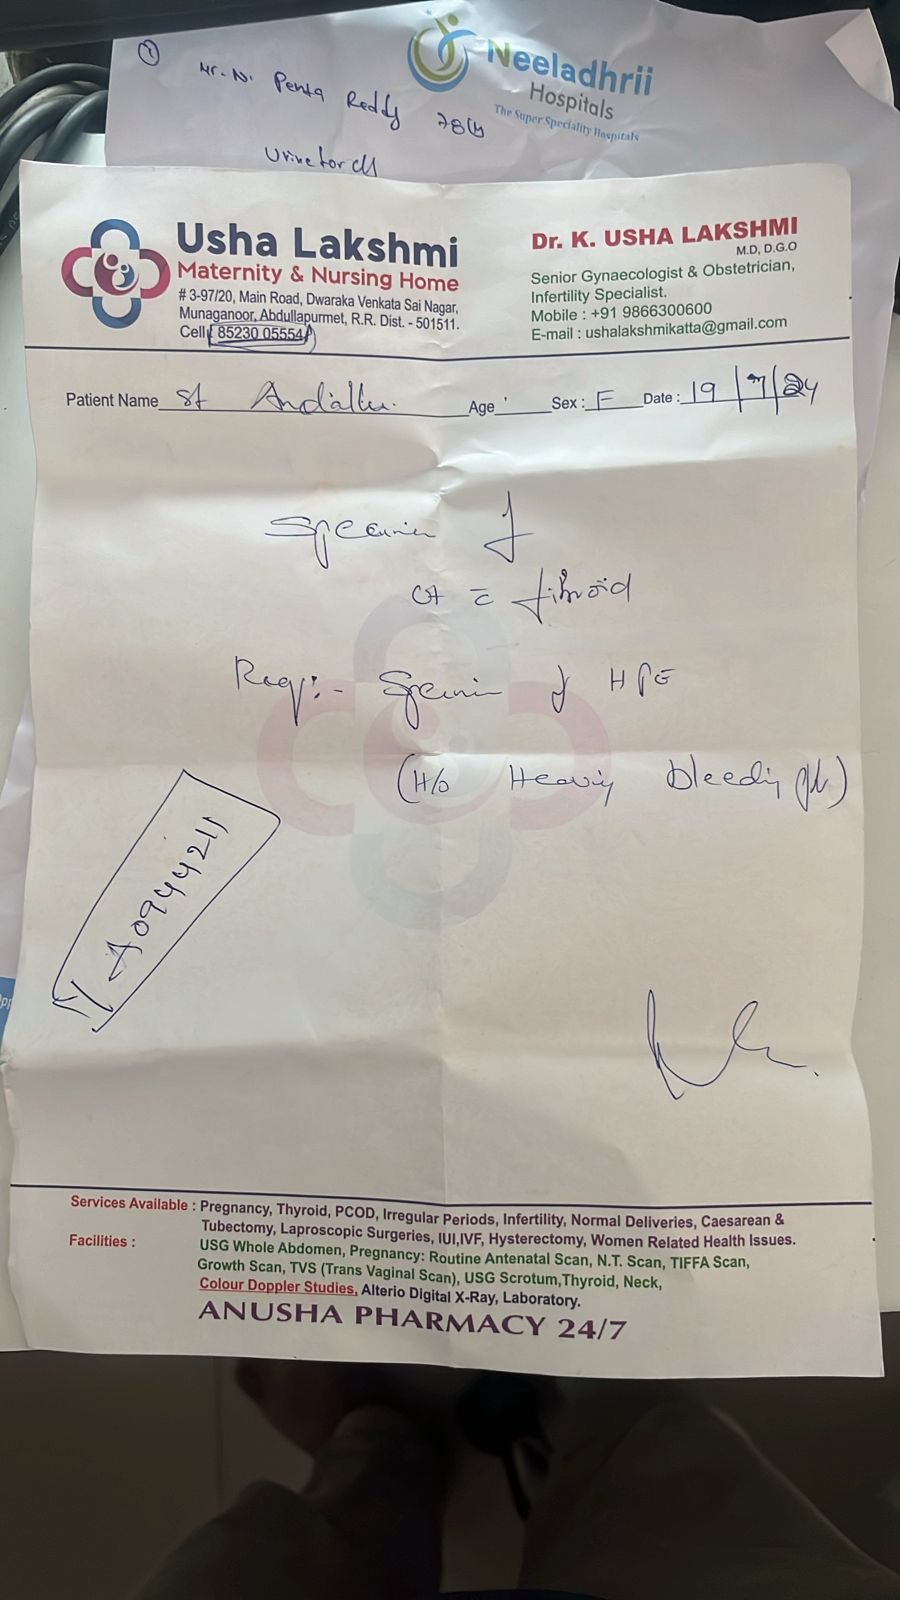 ①
Mr. N. Penta Reddy 78/y
Urine for c/s
Neeladhrii
Hospitals
The Super Speciality Hospitals
Usha Lakshmi
Maternity & Nursing Home
# 3-97/20, Main Road, Dwaraka Venkata Sai Nagar,
Munaganoor, Abdullapurmet, R.R. Dist. - 501511.
Cell: 85230 05554
Dr. K. USHA LAKSHMI
M.D, D.G.O
Senior Gynaecologist & Obstetrician,
Infertility Specialist.
Mobile : +91 9866300600
E-mail : ushalakshmikatta@gmail.com
Patient Name Andallu. Age Sex : F Date : 19/7/24
Specimen of
fibroid
Req:- Specimen of HPE
(H/o Heavy bleeding
A0944211
Services Available : Pregnancy, Thyroid, PCOD, Irregular Periods, Infertility, Normal Deliveries, Caesarean &
Tubectomy, Laproscopic Surgeries, IUI,IVF, Hysterectomy, Women Related Health Issues.
Facilities : USG Whole Abdomen, Pregnancy: Routine Antenatal Scan, N.T. Scan, TIFFA Scan,
Growth Scan, TVS (Trans Vaginal Scan), USG Scrotum,Thyroid, Neck,
Colour Doppler Studies, Alterio Digital X-Ray, Laboratory.
ANUSHA PHARMACY 24/7